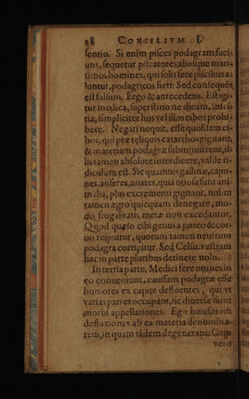 28 CONSILIUM I.
sentio. Si enim pisces podagram faci
unt, sequetur piscatores, aliosque mari-
timos homines, qui solis fere piscibus a-
luntur, podagricos fieri: Sed consequẽs
est falsum. Ergo & antecedens.
tur modica, superstitio ne dicam,
tia, simpliciter hos vel illos cibos prohi-
bere. Negari nequit, esse quosdam ci-
bos, qui præ reliquis catarrhos gignant,
& materiam podagræ subministrent, il-
lis tamen absolute interdicere, valde ri-
diculum est. Sic quamuis gallinæ, capo-
nes, anseres, anates, quia otiosa sunt ani-
malia, plus excrementi gignant, nulli
tamen ægro quicquam denegare, mo-
do, frugalitatis metæ non excedantur.
Quod quæso cibi genus a porco deco-
cto respuunt, quorum tamen neutrum
podagra corripitur. Sed Celsir. vestram
hac in parte pluribus detinere nolo.
In tertia parte, Medici fere omnes in
eo conueniunt, causam podagræ esse
humores ex capite defluentes, qui vt
varias partes occupant, sic diuersæ sunt
morbi appellationes. Ego huiusmodi
defluxiones ab ea materia denomina-
rem, in quam tãdem degenerant. Cum
vero